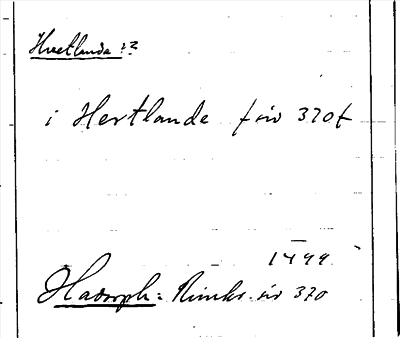 Hvetlanda !?
i Hertlande for 370 f
1499
Hadorph: Rimkr. sid 370